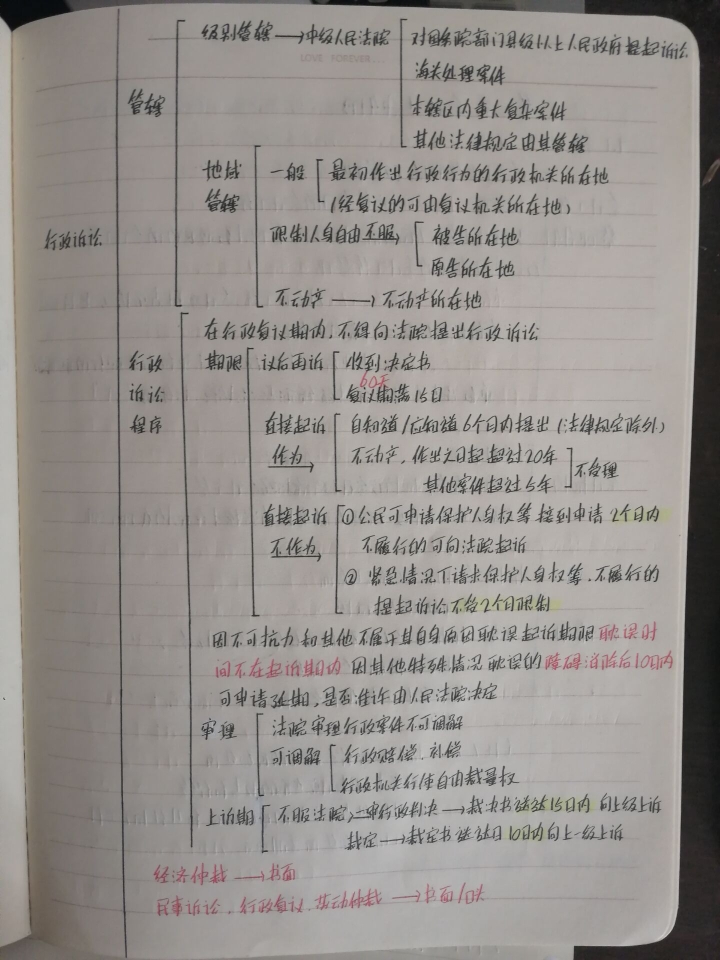 级别管辖→中级人民法院 对国务院部门县级以上人民政府提起诉讼
LOVE FOREVER...
海关处理案件
管辖 本辖区内重大复杂案件
其他法律规定由其管辖
地域 一般 最初作出行政行为的行政机关所在地
管辖 (经复议的可由复议机关所在地)
行政诉讼 限制人身自由不服 被告所在地
原告所在地
不动产→不动产所在地
在行政复议期内,不得向法院提出行政诉讼
行政 期限 议后再诉 收到决定书
60天
诉讼 复议期满15日
程序 直接起诉 自知道/应知道6个月内提出(法律规定除外)
作为 不动产,作出之日起超过20年 不受理
其他案件超过5年
直接起诉 ①公民可申请保护人身权等接到申请2个月内
不作为 不履行的可向法院起诉
② 紧急情况下请求保护人身权等,不履行的
提起诉讼不受2个月限制
因不可抗力和其他不属于其自身原因耽误起诉期限 耽误时
间不在起诉期内 因其他特殊情况耽误的障碍消除后10日内
可申请延期,是否准许由人民法院决定
审理 法院审理行政案件不可调解
可调解 行政赔偿、补偿
行政机关行使自由裁量权
上诉期 不服法院一审行政判决→裁决书送达15日内 向上级上诉
裁定→裁定书送达日10日内向上一级上诉
经济仲裁→书面
民事诉讼、行政复议、劳动仲裁→书面/口头